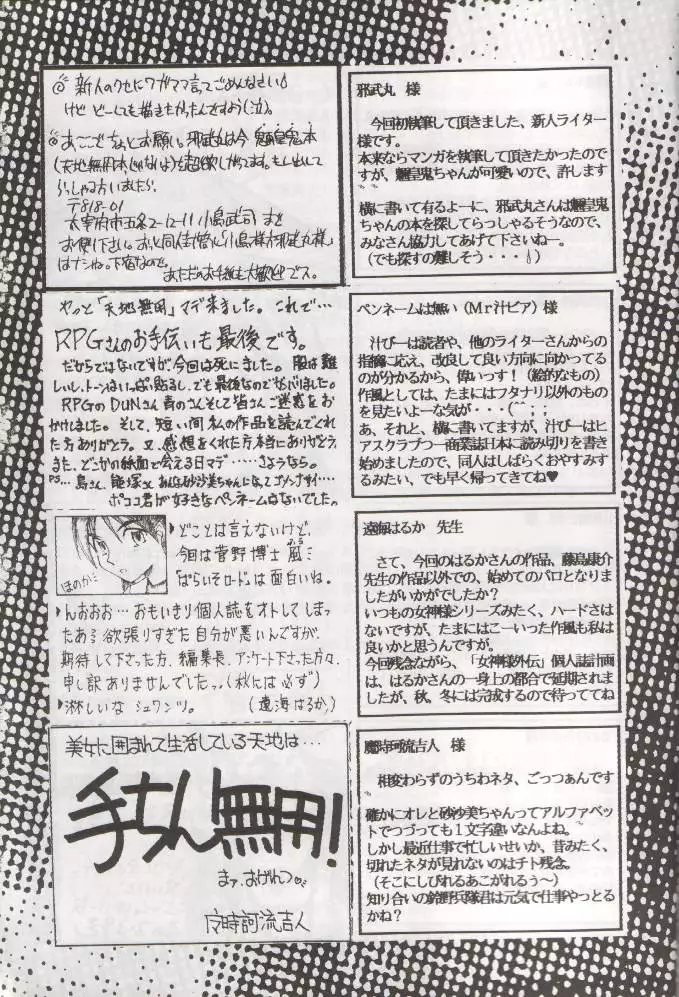 ◎新人のクセにワガママ言ってごめんなさい
けど どーしても描きたかったんですよう(泣)。
魎皇鬼本
(天地無用本じゃないよ)を超欲しがってます。もし出して
らっしゃる方いましたら
〒818-01
太宰府市五条2-12-11 小島武司 まで
お便り下さい。
はナシね。下宿なので。
お手紙も大歓迎デス。
邪武丸 様
今回初執筆して頂きました、新人ライター
様です。
本来ならマンガを執筆して頂きたかったので
すが、魎皇鬼ちゃんが可愛いので、許します
横に書いて有るよーに、邪武丸さんは魎皇鬼
ちゃんの本を探してらっしゃるそうなので、
みなさん協力してあげて下さいねー。
(でも探すの難しそう・・・)
やっと「天地無用」マデ来ました。これで…
RPGさんのお手伝いも最後です。
だからではないですが、今回は死にました。服は難
しいし、トーンはいっぱい貼るし、でも最後なのでがんばりました。
RPGのDUNさん、責のさんそして皆さんご迷惑をお
かけしました。そして、短い間私の作品を読んでくれ
た方ありがとう。又、感想をくれた方本当にありがとう。
また、どこかの紙面で会える日マデ……さようなら。
ポココ君が好きなペンネームはないでした。
ペンネームは無い(Mr汁ピア)様
汁ぴーは読者や、他のライターさんからの
指摘に応え、改良して良い方向に向かってる
のが分かるから、偉いっす!(絵的なもの)
作風としては、たまにはフタナリ以外のもの
を見たいよーな気が・・・(^^;;
あ、それと、横に書いてますが、汁ぴーはヒ
アスクラブつー商業誌日本に読み切りを書き
始めましたので、同人はしばらくおやすみす
るみたい、でも早く帰ってきてね♥
ほのか
どことは言えないけど、
今回は菅野博士 風ミ
「ぱらいそロード」は面白いね。
んおおお…おもいきり個人誌をオトしてしまっ
たあう欲張りすぎた自分が悪いんですが、
期待して下さった方、編集長、アンケート下さった方々、
申し訳ありませんでしたっ。(秋には必ず)
淋しいな シュワンツ。 (遠海はるか)
遠海はるか 先生
さて、今回のはるかさんの作品、藤島康介
先生の作品以外での、始めてのパロとなりま
したがいかがでしたか?
いつもの女神様シリーズみたく、ハードさは
ないですが、たまにはこーいった作風も私は
良いかと思うんですが。
今回残念ながら、「女神様外伝」個人誌計画
は、はるかさんの一身上の都合で延期されま
したが、秋、冬には完成するので待っててね
美女に囲まれて生活している天地は…
手ちん無用!
まァ、おげんつ
魔時訶流吉人
魔時訶流吉人 様
相変わらずのうちわネタ、ごっつぁんです
確かにオレと砂沙美ちゃんってアルファベッ
トでつづっても1文字違いなんよね。
しかし最近仕事で忙しいせいか、昔みたく、
切れたネタが見れないのはチト残念。
(そこにしびれるあこがれるぅ〜)
知り合いの鈴野兵隊君は元気で仕事やっとる
かね?